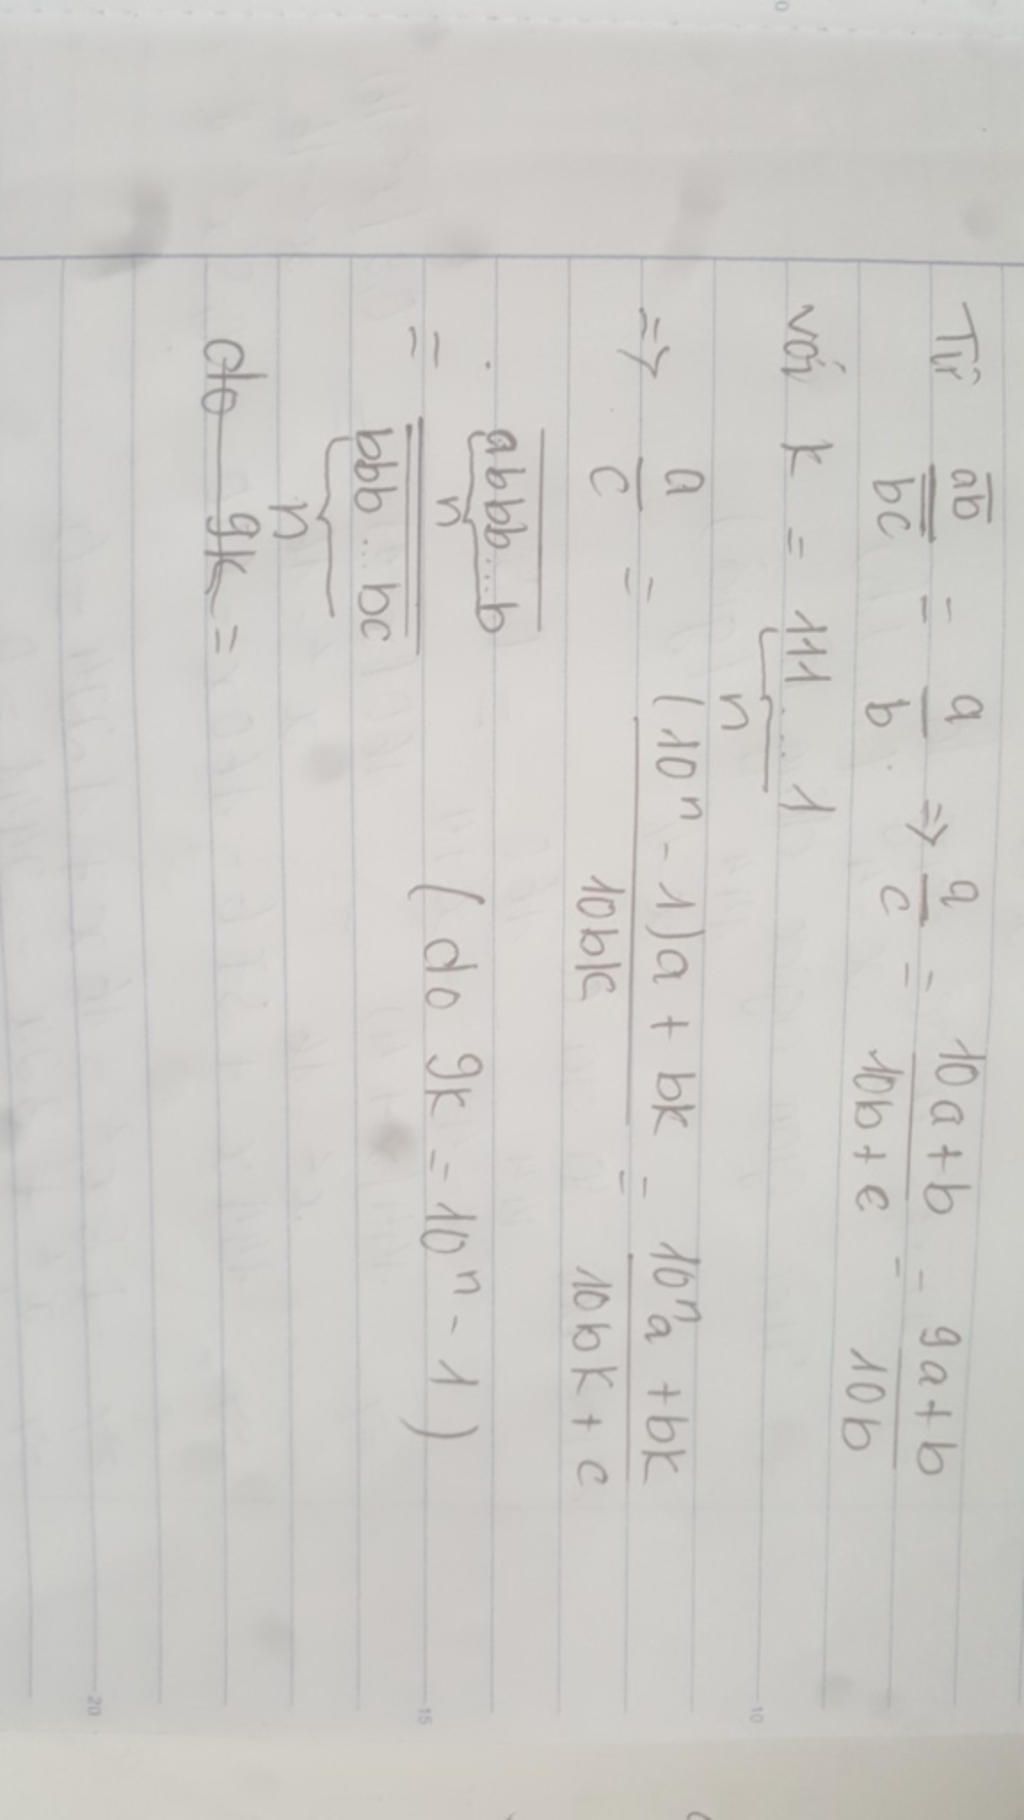 Từ \frac{\overline{ab}}{\overline{bc}} = \frac{a}{b} => \frac{a}{c} = \frac{10a+b}{10b+c} = \frac{9a+b}{10b}
với k = 111...1 (n)
=> \frac{a}{c} = \frac{(10^n - 1)a + bk}{10bk} = \frac{10^n a + bk}{10bk + c}
= \frac{\overline{abbb...b}}{\overline{bbb...bc}} (n) (n) (do 9k = 10^n - 1)
do 9k =
10
15
20